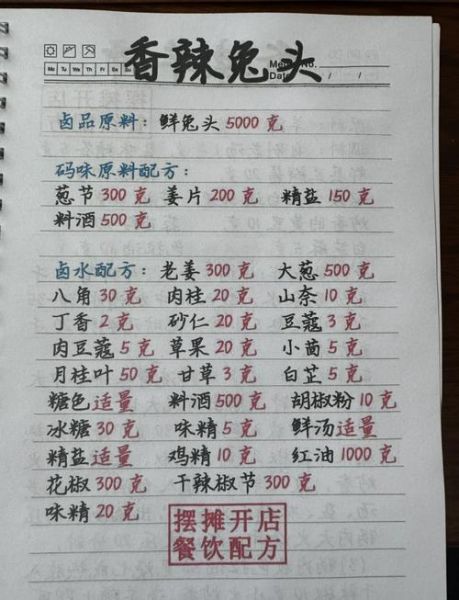 香辣兔头
Memo No.
Mo Tu We Th Fr
Date / /
卤品原料：鲜兔头5000克
码味原料配方：
葱节300克 姜片200克 精盐150克
料酒500克
卤水配方：老姜300克 大葱500克
八角30克 肉桂20克 山奈10克
丁香2克 砂仁20克 豆蔻3克
肉豆蔻5克 草果20克 小茴5克
月桂叶50克 甘草3克 白芷5克
糖色适量 料酒500克 胡椒粉10克
冰糖30克 味精5克 鲜汤适量
精盐适量 鸡精10克 红油1000克
花椒300克 干辣椒节300克
味精20克
摆摊开店
餐饮配方